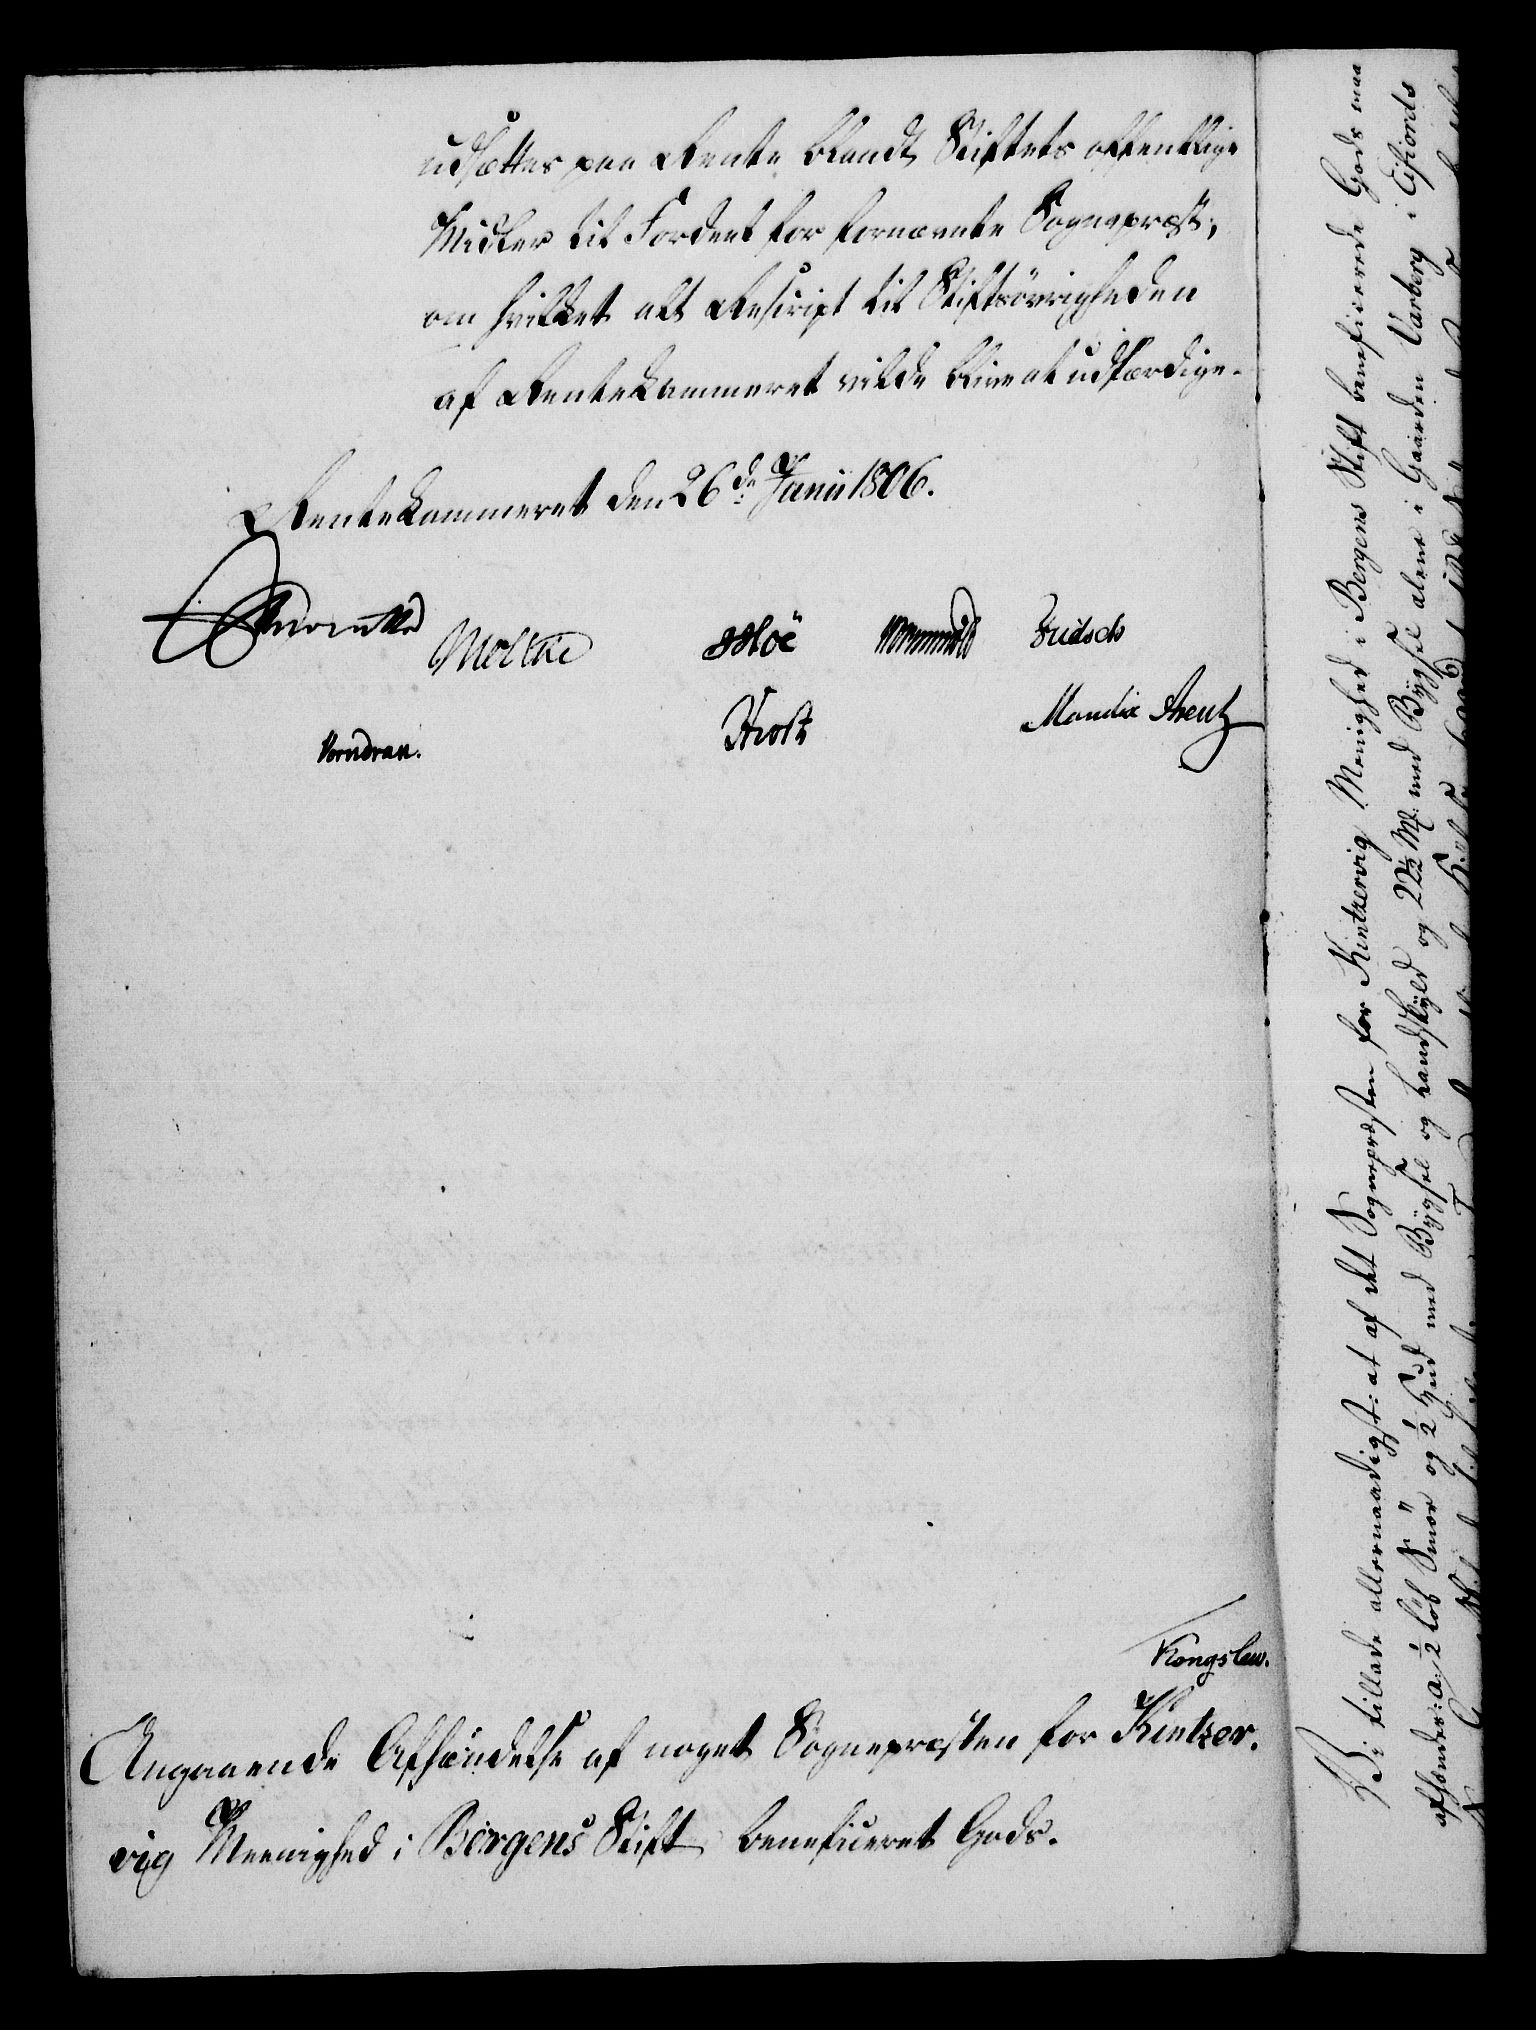 udsættes paa Rente blandt Stiftets offentlige
Midler til Fordeel for fornævnte Sognepræst;
om hvilket alt Rescript til Stiftsövrigheden
af Rentekammeret vilde blive at udfærdige.
Rentekammeret den 26de Junii 1806.
Moltke Hoë Wormskiold Fridsch
Vorndran. Holst Mandix Arentz
Kongslew.
Angaaende Afhændelse af noget Sognepræsten for Kintzer-
vig Meenighed i Bergens Stift beneficeret Gods.
Vi tillade allernaadigst: at af det Sognepræsten for Kintzervig Menighed i Bergens Stift beneficerede Gods maa
afhændes: a, ½ Løb Smør og ½ Hud med Bygsel og Landskyld og 22½ Mk med Bygsel alene i Gaarden Varberg i Eifiords